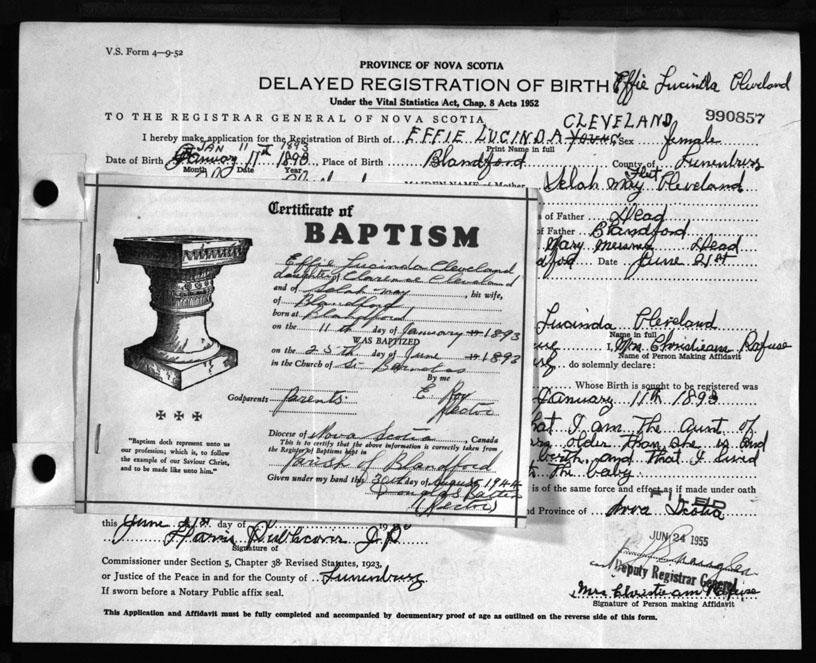 V.S. Form 4—9-52
PROVINCE OF NOVA SCOTIA
DELAYED REGISTRATION OF BIRTH Effie Lucinda Cleveland
Under the Vital Statistics Act, Chap. 8 Acts 1952
TO THE REGISTRAR GENERAL OF NOVA SCOTIA CLEVELAND 990857
I hereby make application for the Registration of Birth of EFFIE LUCINDA YOUNG Sex female
Print Name in full
JAN 11th 1893
Date of Birth January 11th Place of Birth Blandford County of Lunenburg
Month Date Year
MAIDEN NAME of Mother Selah May Cleveland
s of Father Head
of Father Blandford
Mary Head
dford Date June 21st
Certificate of
BAPTISM
Effie Lucinda Cleveland
daughter of Clarence Cleveland
and of Selah May, his wife,
of Blandford
born at Blandford
on the 11th day of January 19 1893
WAS BAPTIZED
on the 25th day of June 19 1893
in the Church of St Barnabas
By me
Godparents parents. E. Roy
Rector
Diocese of Nova Scotia, Canada
This is to certify that the above information is correctly taken from
the Register of Baptisms kept in
Parish of Blandford
Given under my hand this 30th day of August 1944
(Rector)
"Baptism doth represent unto us
our profession; which is, to follow
the example of our Saviour Christ,
and to be made like unto him."
Lucinda Cleveland
Name in full
I, Mrs Christieann Rafuse
Name of Person Making Affidavit
do solemnly declare:
Whose Birth is sought to be registered was
January 11th 1893
hat I am the aunt of
older than she is and
birth, and that I lived
the baby
is of the same force and effect as if made under oath
FILED
nd Province of Nova Scotia
this June 21st day of 19
Harris Publicover J.P.
Signature of
JUN 24 1955
Commissioner under Section 5, Chapter 38 Revised Statutes, 1923,
Deputy Registrar General
or Justice of the Peace in and for the County of Lunenburg
If sworn before a Notary Public affix seal.
Mrs Christieann Rafuse
Signature of Person making Affidavit
This Application and Affidavit must be fully completed and accompanied by documentary proof of age as outlined on the reverse side of this form.